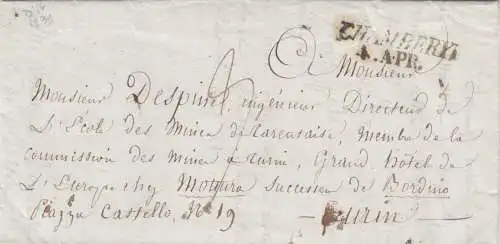 CHAMBERY
4. APR.
à Monsieur
Monsieur Despine, ingénieur Directeur de
L'École des Mines de Tarentaise, Membre de la
Commission des Mines à Turin, Grand Hôtel de
L'Europe chez Mottura successeur de Bordino
Piazza Castello, N.º 19 — Turin —